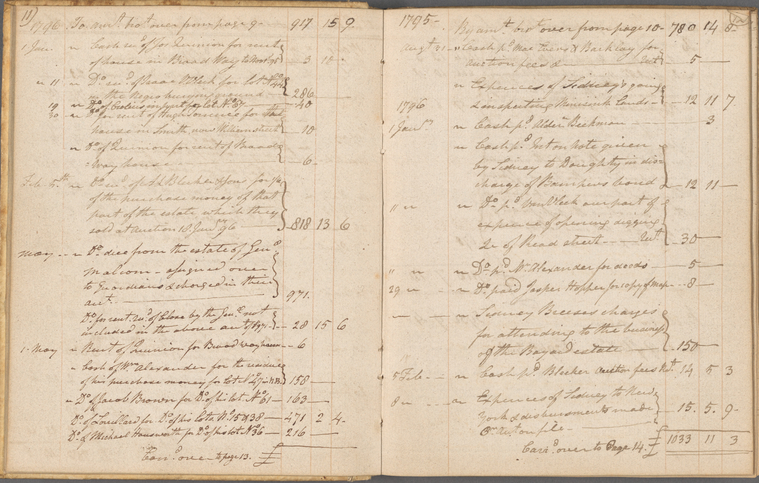 11
1796 To am.t bro.t over from page 9 - 917 15 9
1 Jan. " Cash rec.d of for Quinion for rent
of house in Broad Way to Nov.r 95 3 10 -
" 11 " D.o rec.d of Isaac Clark for lot N.o
in the Negro burying ground 286 -
19 " D.o of in part for lot N.o 67 - 40
30 " for rent of Hugh for
house in Smith, now William street 10
" D.o of Quinion for rent of Broad
way house 6 -
Feb 6th " D.o rec.d of A L Bleeker & Sons for p.t
of the purchase money of that
part of the estate which they
sold at auction 18 Jan.y 96 - 818 13 6
May - " D.o dues from the estate of Gen.l
Malcom - assigned over
to Guardians & charged in their
acc.t - 971.
D.o for rent rec.d of Rose by the Gen.l not
included in the above acc.t - 28 15 6
1 May - " Rent of Quinion for Broad way house - 6
" Cash of W.m Alexander for the residue
of his purchase money for lot N.o 158 -
" D.o of Jacob Brower for D.o of his lot N.o 61 - 163 -
D.o of Louillard for D.o of his lots N.o 15 & 38 - 471 2 4.
D.o of Michael Houseworth for D.o of his lot N.o 36 - 216 -
Carr.d over to page 13. £
1795 - By am.t bro.t over from page 10 - 780 14 8
Aug.t " Cash p.d Mac Evers & Barklay for
auction fees 5 -
" Expences of Sidney's going
& inspecting Lands - 12 11 7.
1796
1 Jan.y " Cash p.d Alder.n Beekman - 3
" Cash p.d Int. on note given
by Sidney to Doughty in dis
charge of bond - 12 11 -
" " " D.o p.d Van Vleek our part of
expence of opening digging
&c of Read street - 30 -
" " " D.o p.d M.r Alexander for deeds - 5 -
29 " " D.o paid Jasper Hopper for copy of map - 8 -
- - " Sidney Breeses charges
for attending to the business
of the Bayard estate - 150 -
5 Feb - " Cash p.d Bleeker auction fees 14 5 3
8 " - " Expences of Sidney to New
York & disbursements made
15. 5. 9 -
£ 1033 11 3
Carr.d over to Page 14.